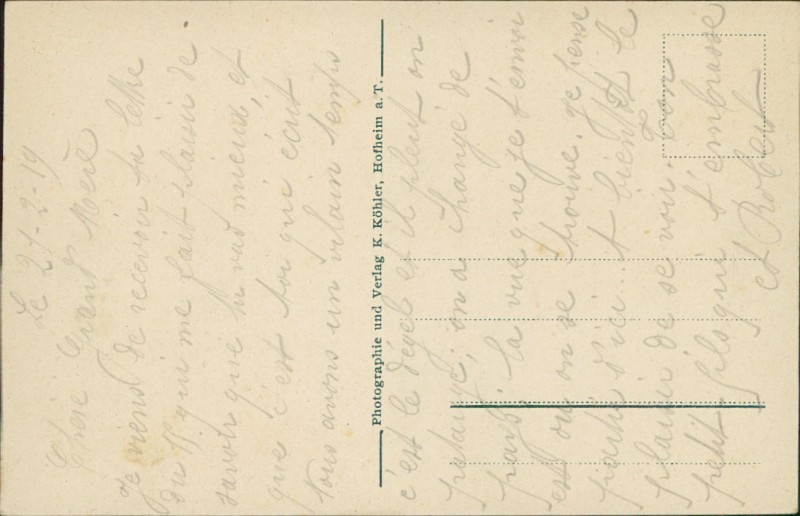 Le 27-2-19
Chère Grand Mère
Je viens de recevoir ta lettre
du 18 qui me fait plaisir de
savoir que tu vas mieux, et
que c'est toi qui écrit
Nous avons un vilain temps
c'est le dégel et il pleut on
patauge, on a changé de
pays. la vue que je t'envoi
est ou on se trouve. Je pense
partir d'ici. A bientôt le
plaisir de se voir. Ton
petit fils qui t'embrasse
et Robert
Photographie und Verlag K. Köhler, Hofheim a. T.